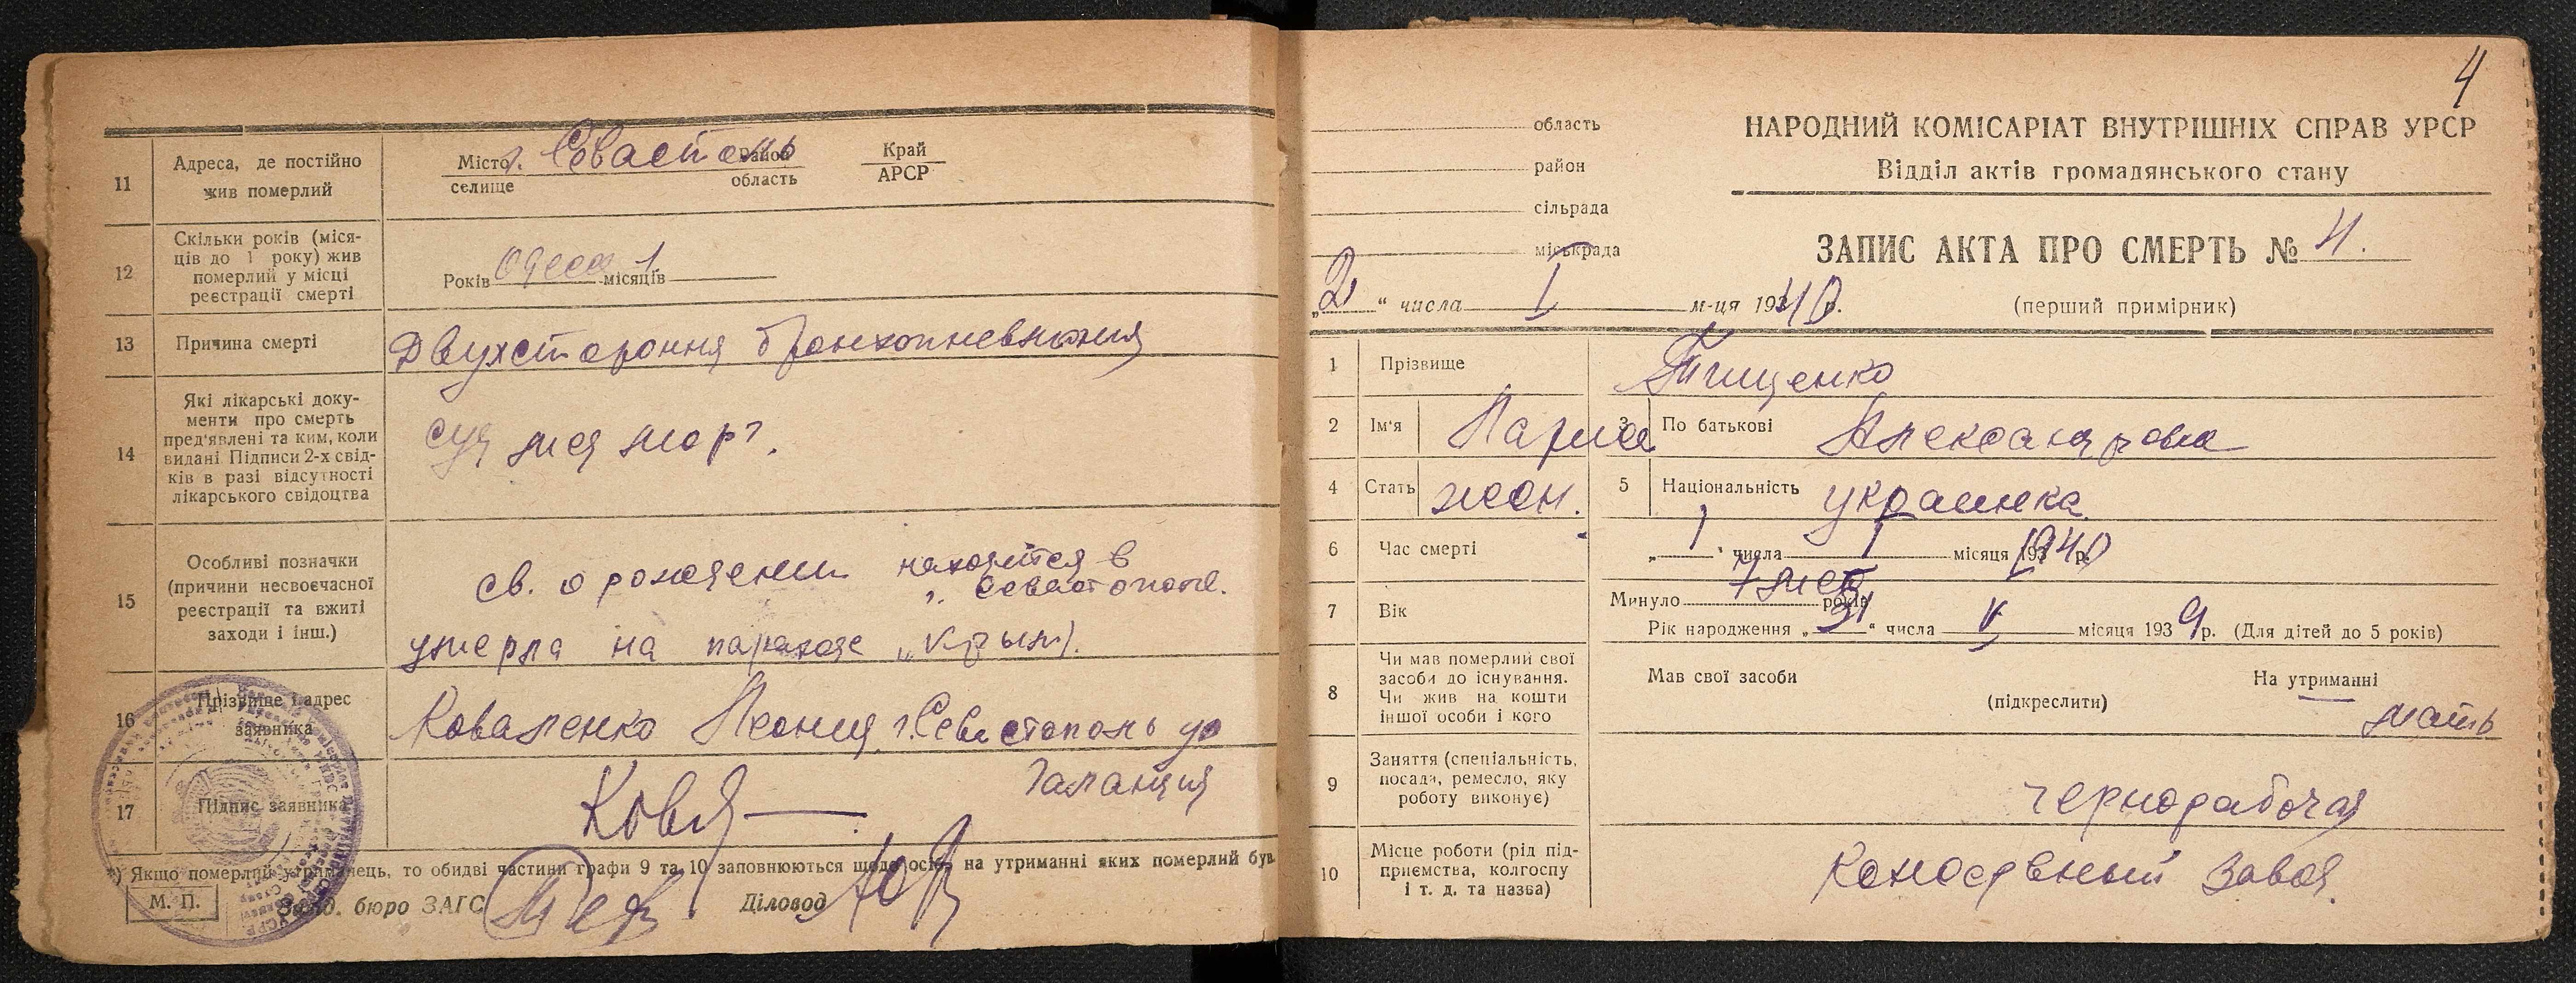 11
Адреса, де постійно
жив померлий
Місто г. Севастополь Район Край
селище область АРСР
12
Скільки років (міся-
ців до 1 року) жив
померлий у місці
реєстрації смерті
Років місяців 1
13
Причина смерті
Двухстороння бронхопневмония
14
Які лікарські доку-
менти про смерть
пред'явлені та ким, коли
видані. Підписи 2-х свід-
ків в разі відсутності
лікарського свідоцтва
суд мед морг.
15
Особливі позначки
(причини несвоєчасної
реєстрації та вжиті
заходи і інш.)
св. о рождении находится в
г. Севастополе.
умерла на пароходе „Крым".
16
Прізвище і адрес
заявника
Коваленко г. Севастополь
17
Підпис заявника
*) Якщо померлий утриманець, то обидві частини графи 9 та 10 заповнюються щодо осіб, на утриманні яких померлий був.
М. П.
Зав. бюро ЗАГС Діловод
4
НАРОДНИЙ КОМІСАРІАТ ВНУТРІШНІХ СПРАВ УРСР
Відділ актів громадянського стану
область
район
сільрада
міськрада
ЗАПИС АКТА ПРО СМЕРТЬ № 4.
„2" числа I м-ця 1940р.
(перший примірник)
1 Прізвище Тищенко
2 Ім'я Лариса 3 По батькові Александровна
4 Стать жен. 5 Національність украинка
6 Час смерті „1" числа 1 місяця 1940р.
7 Вік
Минуло 7 мес років
Рік народження „31" числа V місяця 1939р. (Для дітей до 5 років)
8
Чи мав померлий свої
засоби до існування.
Чи жив на кошти
іншої особи і кого
Мав свої засоби На утриманні
(підкреслити)
мать
9
Заняття (спеціальність,
посада, ремесло, яку
роботу виконує)
чернорабочая
10
Місце роботи (рід під-
приємства, колгоспу
і т. д. та назва)
завод.